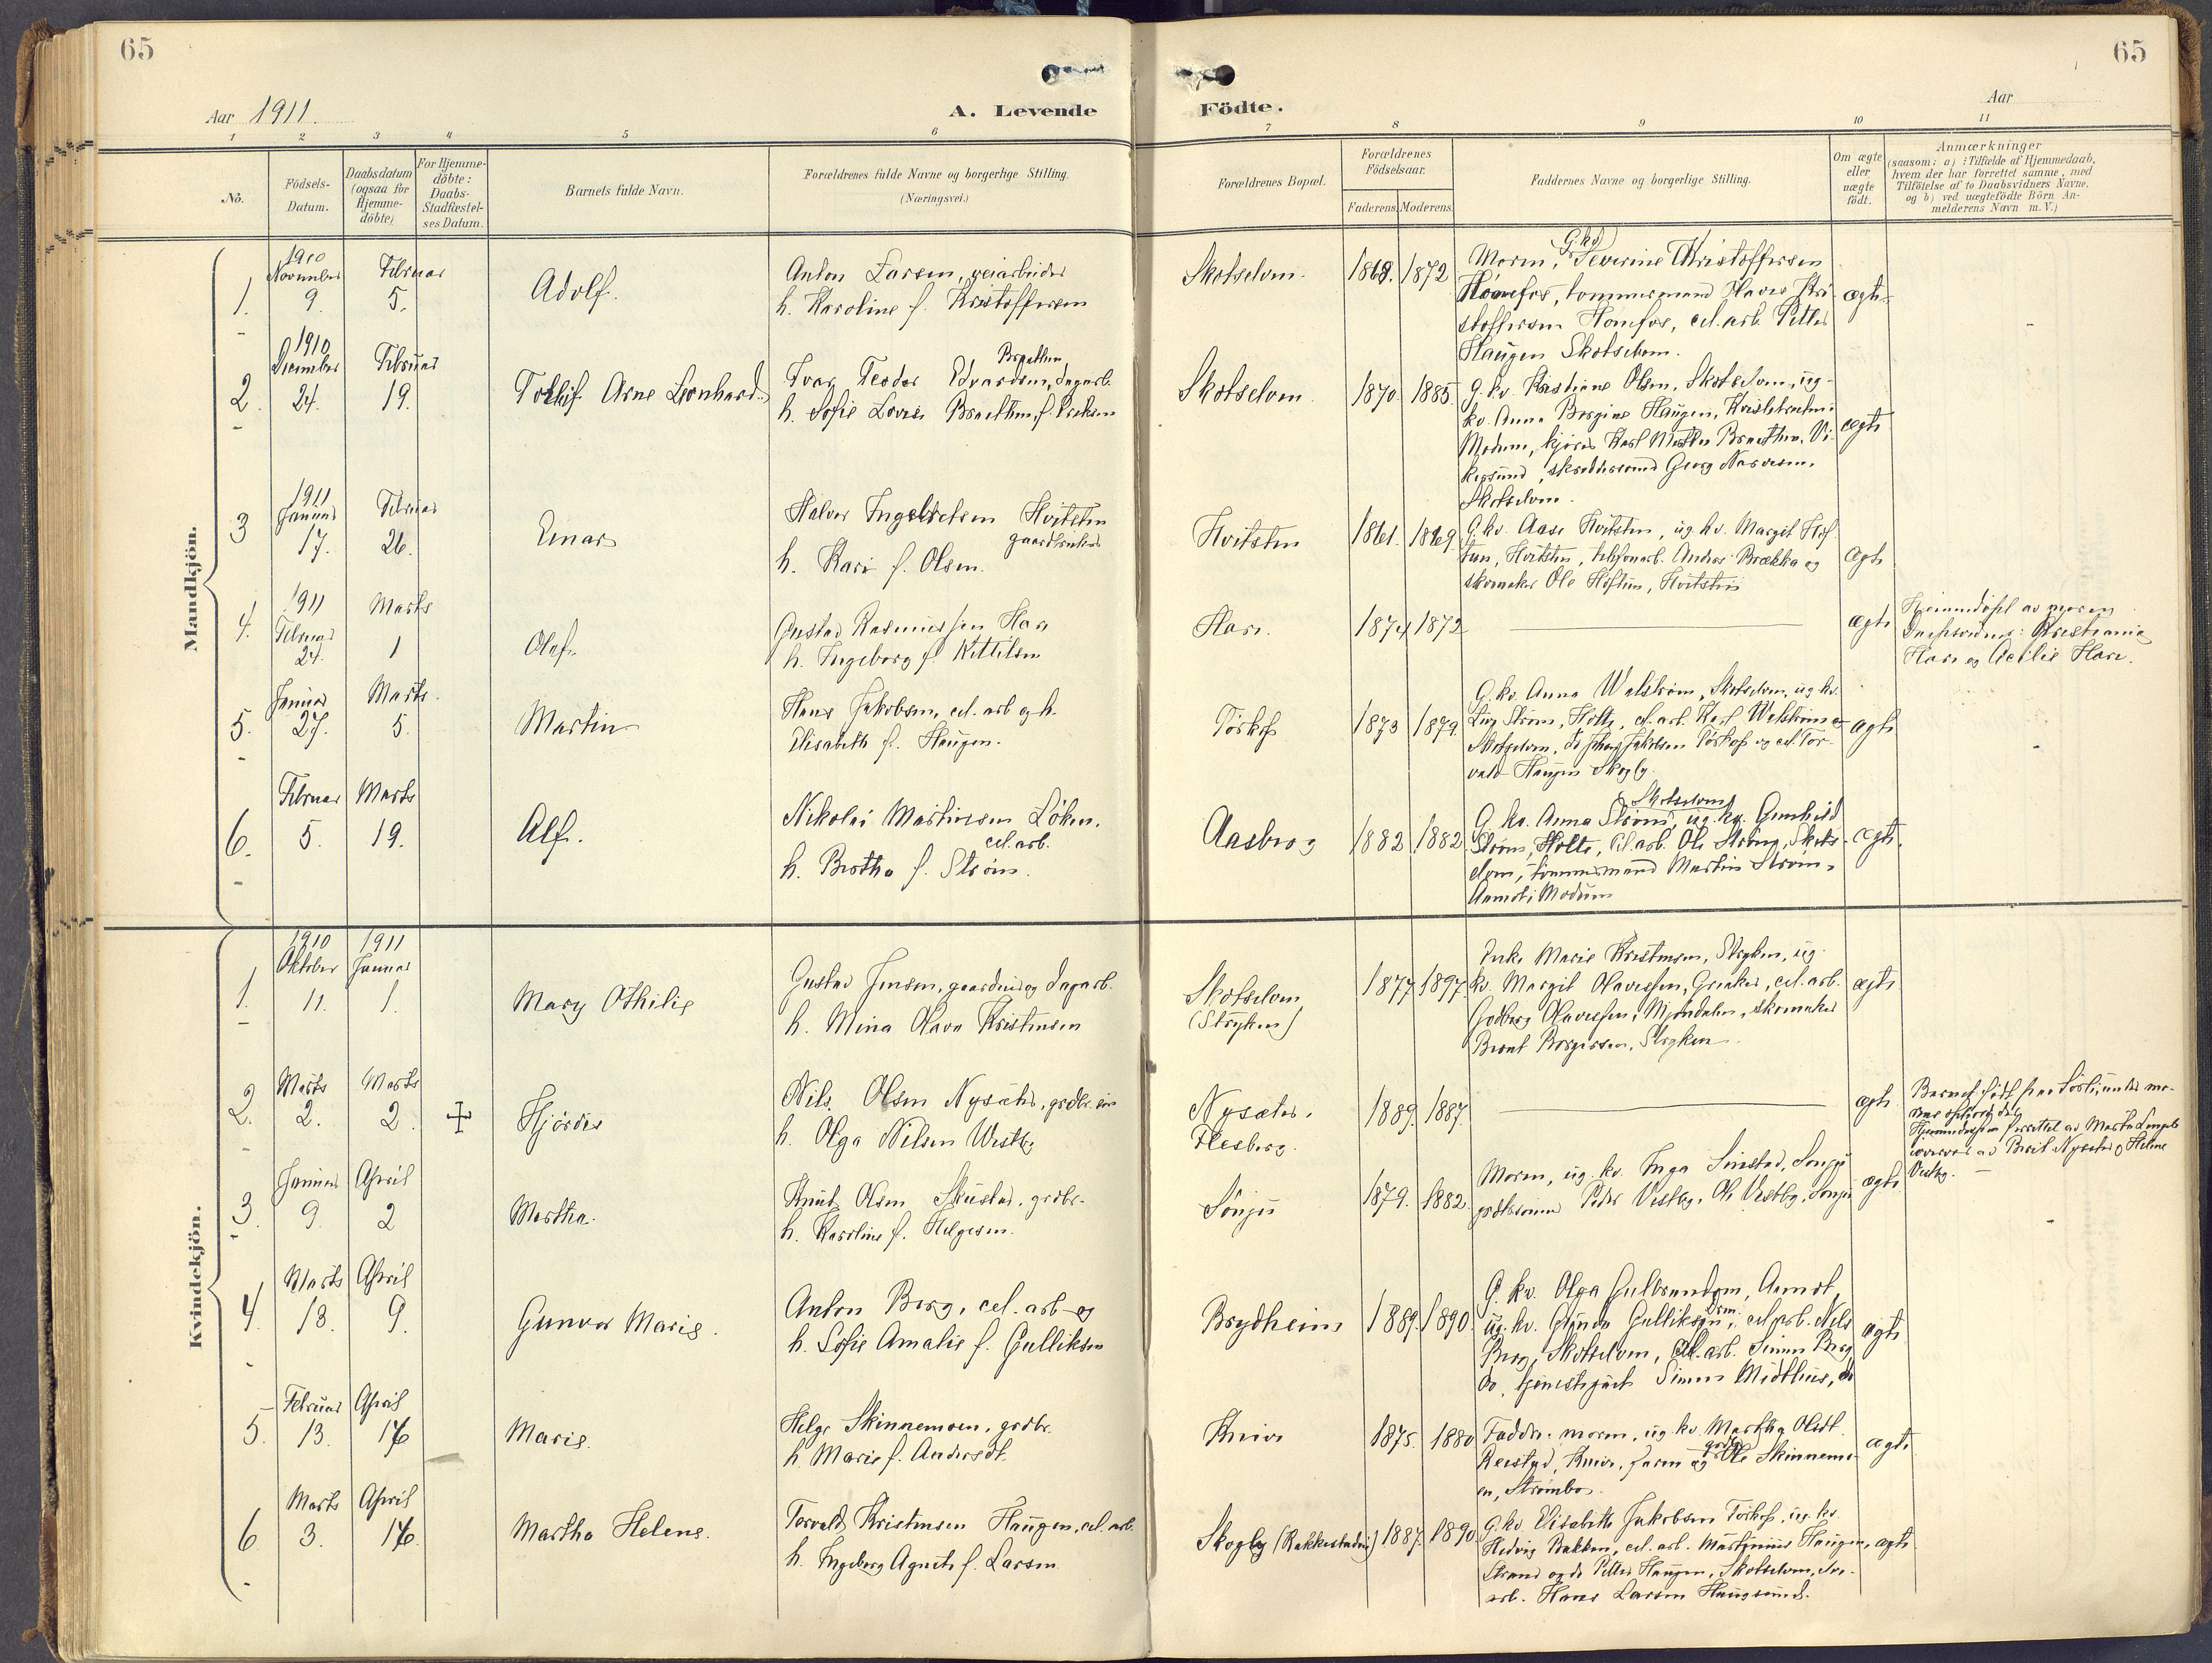 65
65
Aar 1911.
A. Levende
Födte.
Aar
1 2 3 4 5 6 7 8 9 10 11
No.
Födsels-
Datum.
Daabsdatum
(ogsaa for
Hjemme-
döbte)
For Hjemme-
döbte:
Daabs-
Stadfæstel-
ses Datum.
Barnets fulde Navn.
Forældrenes fulde Navne og borgerlige Stilling.
(Næringsvei.)
Forældrenes Bopæl.
Forældrenes
Födselsaar.
Faderens. Moderens.
Faddernes Navne og borgerlige Stilling.
Om ægte
eller
uægte
födt.
Anmærkninger
(saasom: a) : Tilfælde af Hjemmedaab,
hvem der har forrettet samme, med
Tilföielse af to Daabsvidners Navne.
og b) ved uægtefödte Börn An-
melderens Navn m. V.)
Mandkjön.
1.
1910
November
9.
Februar
5.
Adolf.
Anton Larsen, veiarbeider
h. Karoline f. Kristoffersen
Skotselven.
1868. 1872
G. kv.
Moren, Severine Kristoffersen
Hönefos, tømmermand Hans Kri-
stoffersen Hönefos, cel. arb. Petter
Haugen Skotselven.
ægte
2.
1910
December
24.
Februar
19.
Torleif Arne Leonhard
Ivar Teodor Edvardsen, dagarb.
Braathen
h. Sofie Lovise Braathen, f. Eriksen
Skotselven
1870. 1885.
G. kv. Kristiane Olsen, Skotselven, ug-
kv. Anna Bergine Haugen,
Modum, kjører Karl Braathen, Vi-
kersund, skræddersvend Georg Narvesen,
Skotselven.
ægte
3
1911
Januar
17.
Februar
26.
Einar
Halvor Ingebretsen Hvitsten
gaardbruker
h. Kari f. Olsen.
Hvitsten
1861. 1869.
G. kv. Aase Hvitsten, ug. kv. Margit Hof-
tun, Hvitsten, telefonarb. Anders Brekka og
skomaker Ole Hoftun, Hvitsten
ægte
4.
1911
Februar
24.
Marts
1
Olaf.
Gustav Rasmussen Hare
h. Ingeborg f. Kittilsen
Hare.
1874 1872
ægte
Hjemmedøpt av moren
Daapsvidner: Kristiania
Hare og Hare.
5.
Januar
27.
Marts.
5.
Martin
Hans Jakobsen, cel. arb og h.
Elisabeth f. Haugen.
Torkop
1873 1879.
G. kv. Anna Walstrøm, Skotselven, ug. kv.
Strøm, Holte, cel. arb. Karl Walstrøm
Skotselven, do Johan Jakobsen Torkop og cel. Tor-
vald Haugen Skogly.
ægte
6.
Februar
5.
Marts
19.
Alf.
Nikolai Martinsen Löken.
cel. arb.
h. Bertha f. Strøm.
Aasbrog
1882 1882
Skotselven
G. kv. Anna Strøm, ug. kv. Gunhild
Strøm, Holte, Cel. arb. Ole Strøm, Skots-
elven, tømmermand Martin Strøm,
Aamot i Modum
ægte.
Kvindekjön.
1.
1910
Oktober
11.
1911
Januar
1.
Mary Othilie
Gustav Jensen, gaardeier og dagarb.
h. Mina Olava Kristensen
Skotselven
(Stryken)
1877 1897
Enke Marie Kristensen, Stryken, ug.
kv. Margit Olavesen, Greaker, cel. arb.
Godberg Olavesen, Mjøndalen, skomaker
Bernt Borgersen, Stryken
ægte
2.
Marts
2.
Marts
2
Hjördis
Nils Olsen Nysæter, grdbr. sön
h. Olga Nilsen Westby
Nysæter.
Flesberg.
1889. 1887.
ægte.
Barnet født
Hjemmedaapen forrettet av Marta
overvær av Berit Nysæter og Helene
Vestby.
3.
Januar
9.
April
2
Martha.
Knut Olsen Skustad, grdbr.
h. Karoline f. Helgesen.
Sönju
1879. 1882.
Moren, ug. kv. Inga Sønju
grdbrsønner Peder Vestby, Ole Vestby, Sønju
ægte.
4.
Marts
13.
April
9.
Gunvor Marie.
Anton Borg, cel. arb og
h. Sofie Amalie f. Gulliksen
Brydheim
1889. 1890.
G. kv. Olga Gulbrandsen, Aamot,
ug. kv. Gulliksen, cel. arb. Nils
Borg, Skotselven, Cel. arb. Simen Borg
do, tjenestegut Simen Midthus, do
ægte
5.
Februar
13.
April
16
Marie.
Helge Skinnemoen, grdbr.
h. Marie f. Andersdt.
Knive
1875. 1880
Faddr: moren, ug. kv. Martha Olsdt.
Reistad, Knive, faren og grdbr. Ole Skinnemo-
en, Strømbo.
ægte
6
Marts
3.
April
16.
Martha Helene.
Torvald Kristensen Haugen, cel. arb.
h. Ingeborg Agnete f. Larsen
Skogly (Rakkestadeie)
1887. 1890
G. kv. Elisabeth Jakobsen Torkop, ug. kv.
Hedvig Bakken, cel. arb. Martinius Haugen,
Strand og do Petter Haugen, Skotselven,
arb. Hans Larsen Haugsund.
ægte